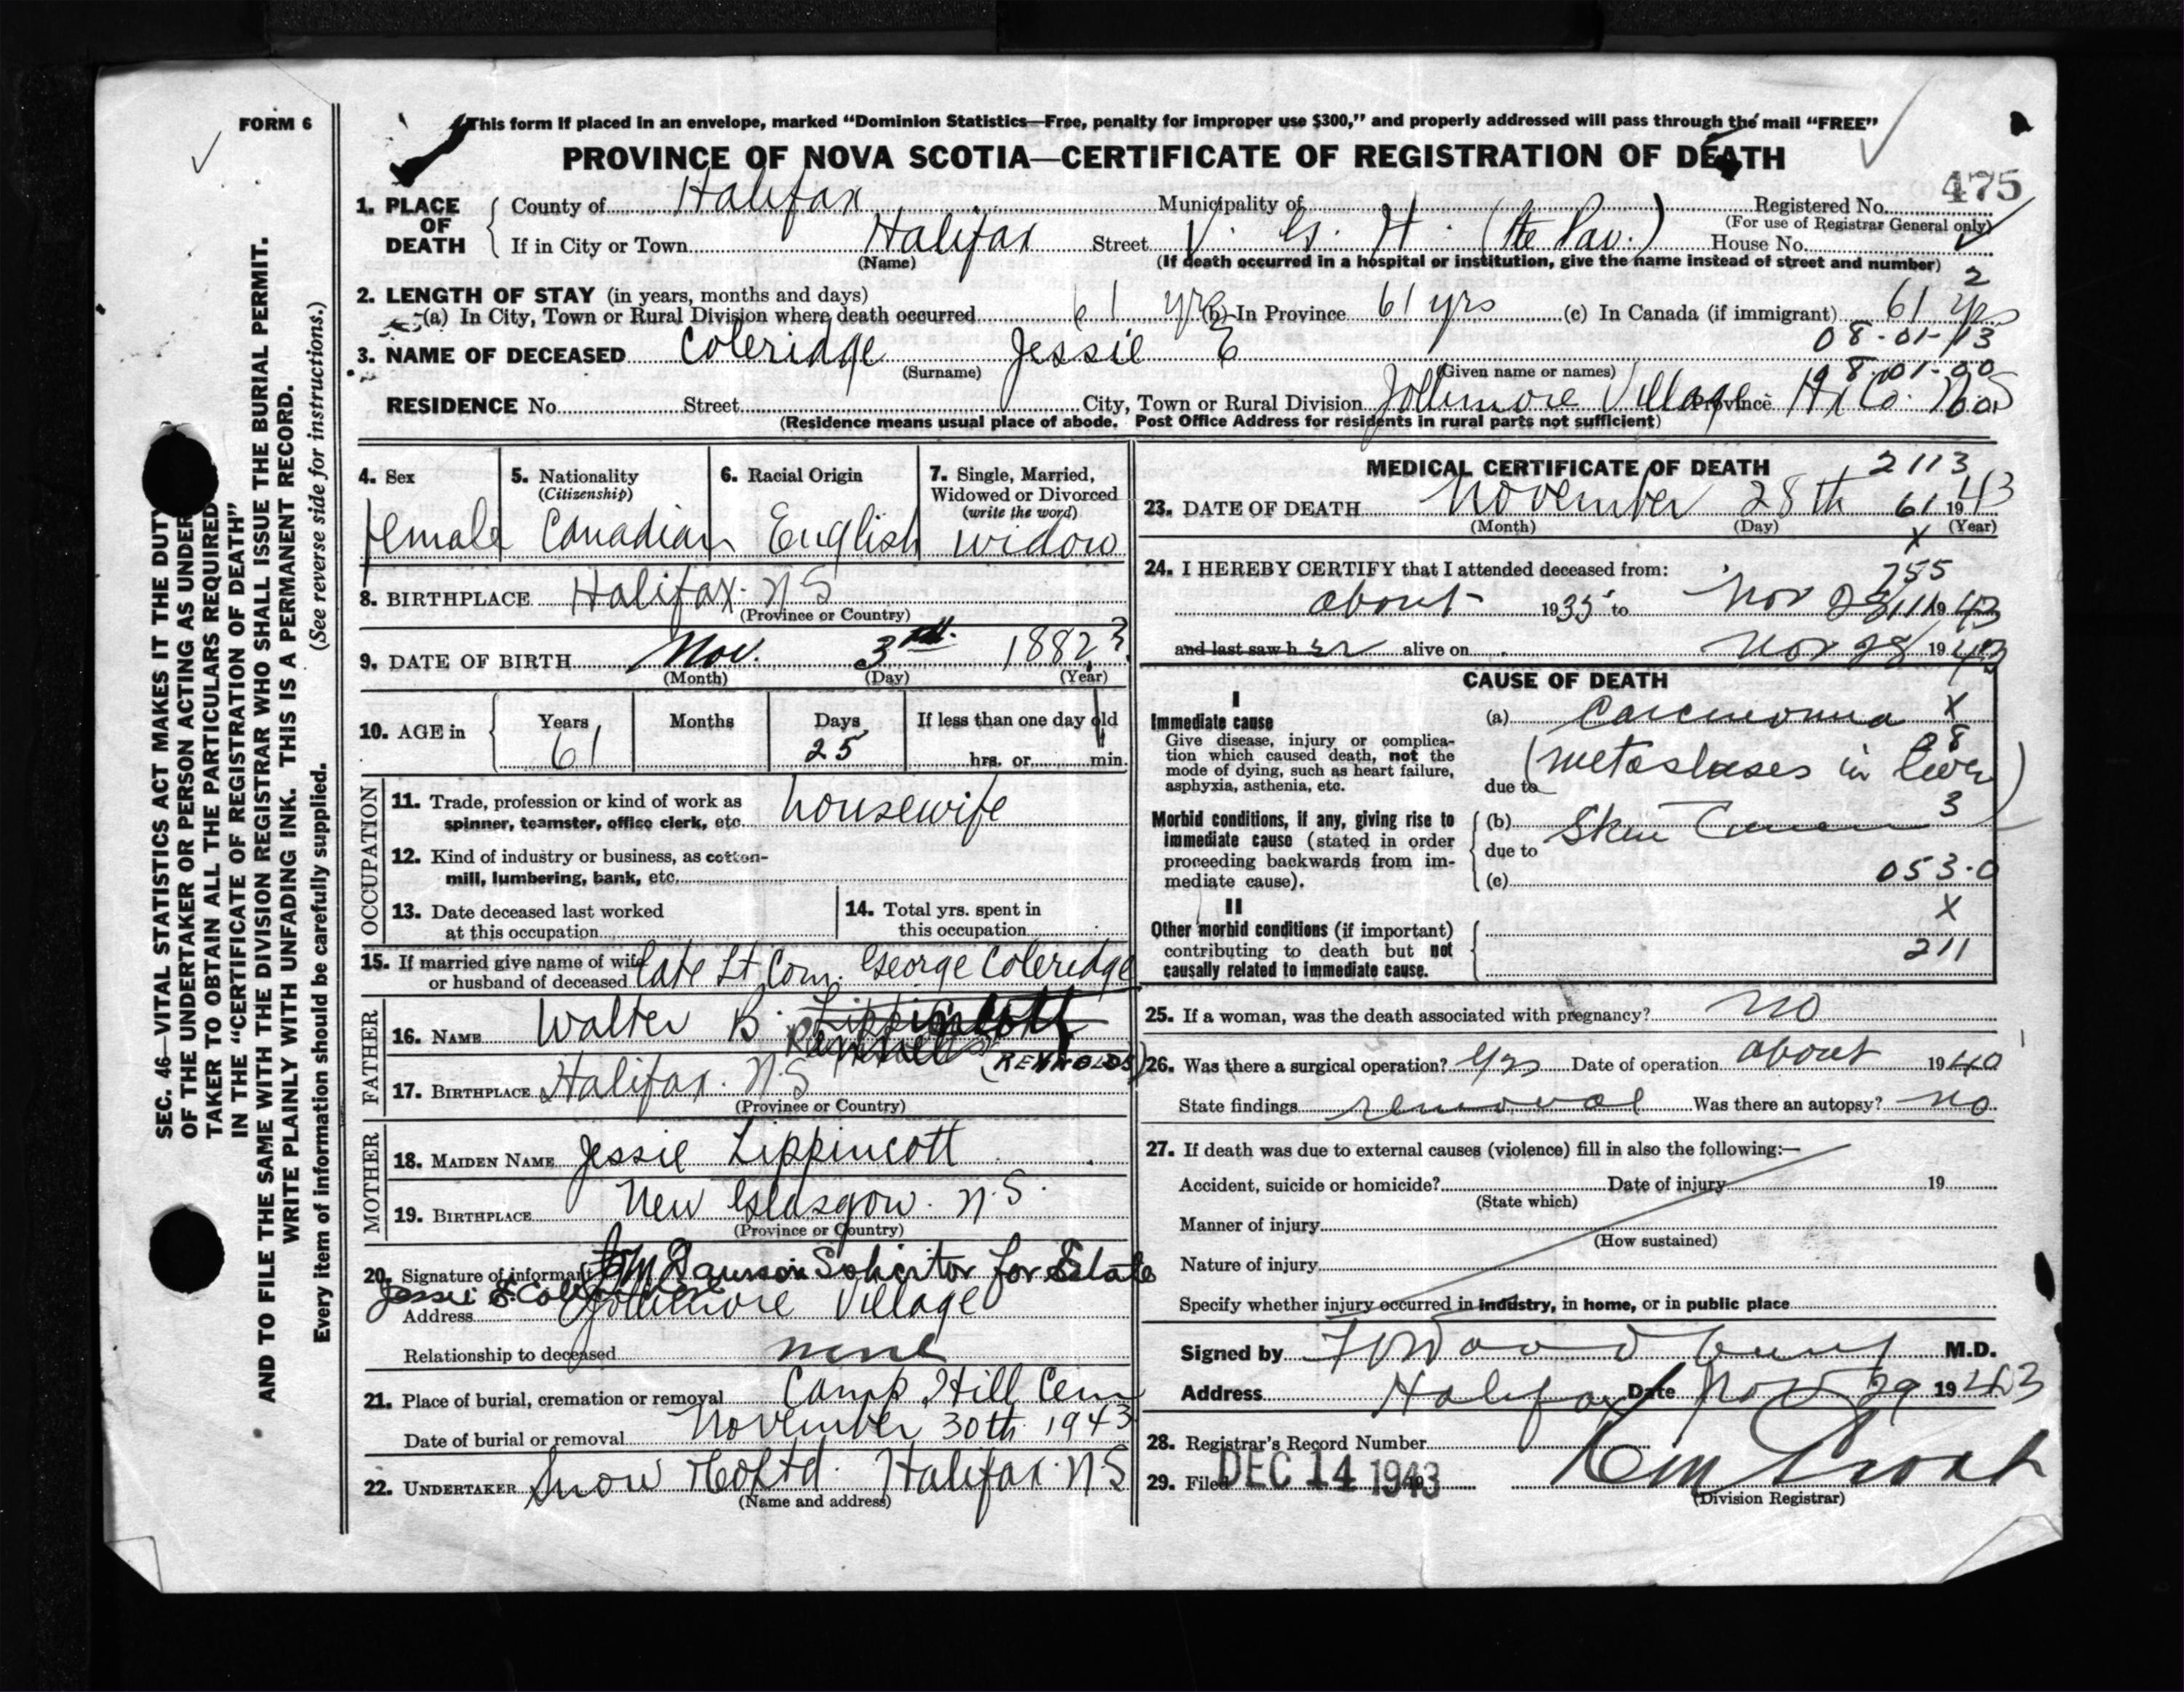 FORM 6
This form if placed in an envelope, marked “Dominion Statistics—Free, penalty for improper use $300,” and properly addressed will pass through the mail “FREE”
PROVINCE OF NOVA SCOTIA—CERTIFICATE OF REGISTRATION OF DEATH
475
1. PLACE OF DEATH County of Halifax Municipality of Registered No.
(For use of Registrar General only)
If in City or Town Halifax Street V. G. H. (Pav.) House No.
(Name) (If death occurred in a hospital or institution, give the name instead of street and number)
2
2. LENGTH OF STAY (in years, months and days)
(a) In City, Town or Rural Division where death occurred 61 yrs (b) In Province 61 yrs (c) In Canada (if immigrant) 61 yrs
08-01-13
3. NAME OF DECEASED Coleridge Jessie E
(Surname) (Given name or names)
08-01-00
RESIDENCE No. Street City, Town or Rural Division Jollimore Village Province Hx Co. N.S
(Residence means usual place of abode. Post Office Address for residents in rural parts not sufficient)
4. Sex 5. Nationality (Citizenship) 6. Racial Origin 7. Single, Married, Widowed or Divorced (write the word)
female Canadian English widow
8. BIRTHPLACE Halifax. N S
(Province or Country)
9. DATE OF BIRTH Nov. 3rd. 1882 ?
(Month) (Day) (Year)
10. AGE in Years Months Days If less than one day old
61 25 hrs. or min.
OCCUPATION
11. Trade, profession or kind of work as spinner, teamster, office clerk, etc. housewife
12. Kind of industry or business, as cotton-mill, lumbering, bank, etc.
13. Date deceased last worked at this occupation
14. Total yrs. spent in this occupation
15. If married give name of wife or husband of deceased late Lt Com. George Coleridge
FATHER
16. NAME Walter B. Lippincott
(REYNOLDS)
17. BIRTHPLACE Halifax. N.S
(Province or Country)
MOTHER
18. MAIDEN NAME Jessie Lippincott
19. BIRTHPLACE New Glasgow. N.S.
(Province or Country)
20. Signature of informant Solicitor for Estate
Jessie E Coleridge
Address Jollimore Village
Relationship to deceased none
21. Place of burial, cremation or removal Camp Hill Cem
Date of burial or removal November 30th 1943
22. UNDERTAKER Snow & Co Ltd. Halifax. N S
(Name and address)
MEDICAL CERTIFICATE OF DEATH 2113
23. DATE OF DEATH November 28th 61 1943
(Month) (Day) (Year)
X
24. I HEREBY CERTIFY that I attended deceased from:
755
about 1935 to Nov 1943
and last saw her alive on Nov 28 1943
CAUSE OF DEATH
I
Immediate cause
Give disease, injury or complication which caused death, not the mode of dying, such as heart failure, asphyxia, asthenia, etc.
(a) Carcinoma X
8
due to (metastases in liver)
3
Morbid conditions, if any, giving rise to immediate cause (stated in order proceeding backwards from immediate cause).
(b) Skin
due to
(c) 053.0
II X
Other morbid conditions (if important) contributing to death but not causally related to immediate cause.
211
25. If a woman, was the death associated with pregnancy? no
26. Was there a surgical operation? yes Date of operation about 1940
State findings removal Was there an autopsy? no
27. If death was due to external causes (violence) fill in also the following:—
Accident, suicide or homicide? Date of injury 19
(State which)
Manner of injury
(How sustained)
Nature of injury
Specify whether injury occurred in industry, in home, or in public place
Signed by M.D.
Address Halifax Date Nov 29 1943
28. Registrar's Record Number
29. Filed DEC 14 1943
(Division Registrar)
SEC. 46—VITAL STATISTICS ACT MAKES IT THE DUTY
OF THE UNDERTAKER OR PERSON ACTING AS UNDER
TAKER TO OBTAIN ALL THE PARTICULARS REQUIRED
IN THE “CERTIFICATE OF REGISTRATION OF DEATH”
AND TO FILE THE SAME WITH THE DIVISION REGISTRAR WHO SHALL ISSUE THE BURIAL PERMIT.
WRITE PLAINLY WITH UNFADING INK. THIS IS A PERMANENT RECORD.
Every item of information should be carefully supplied. (See reverse side for instructions.)